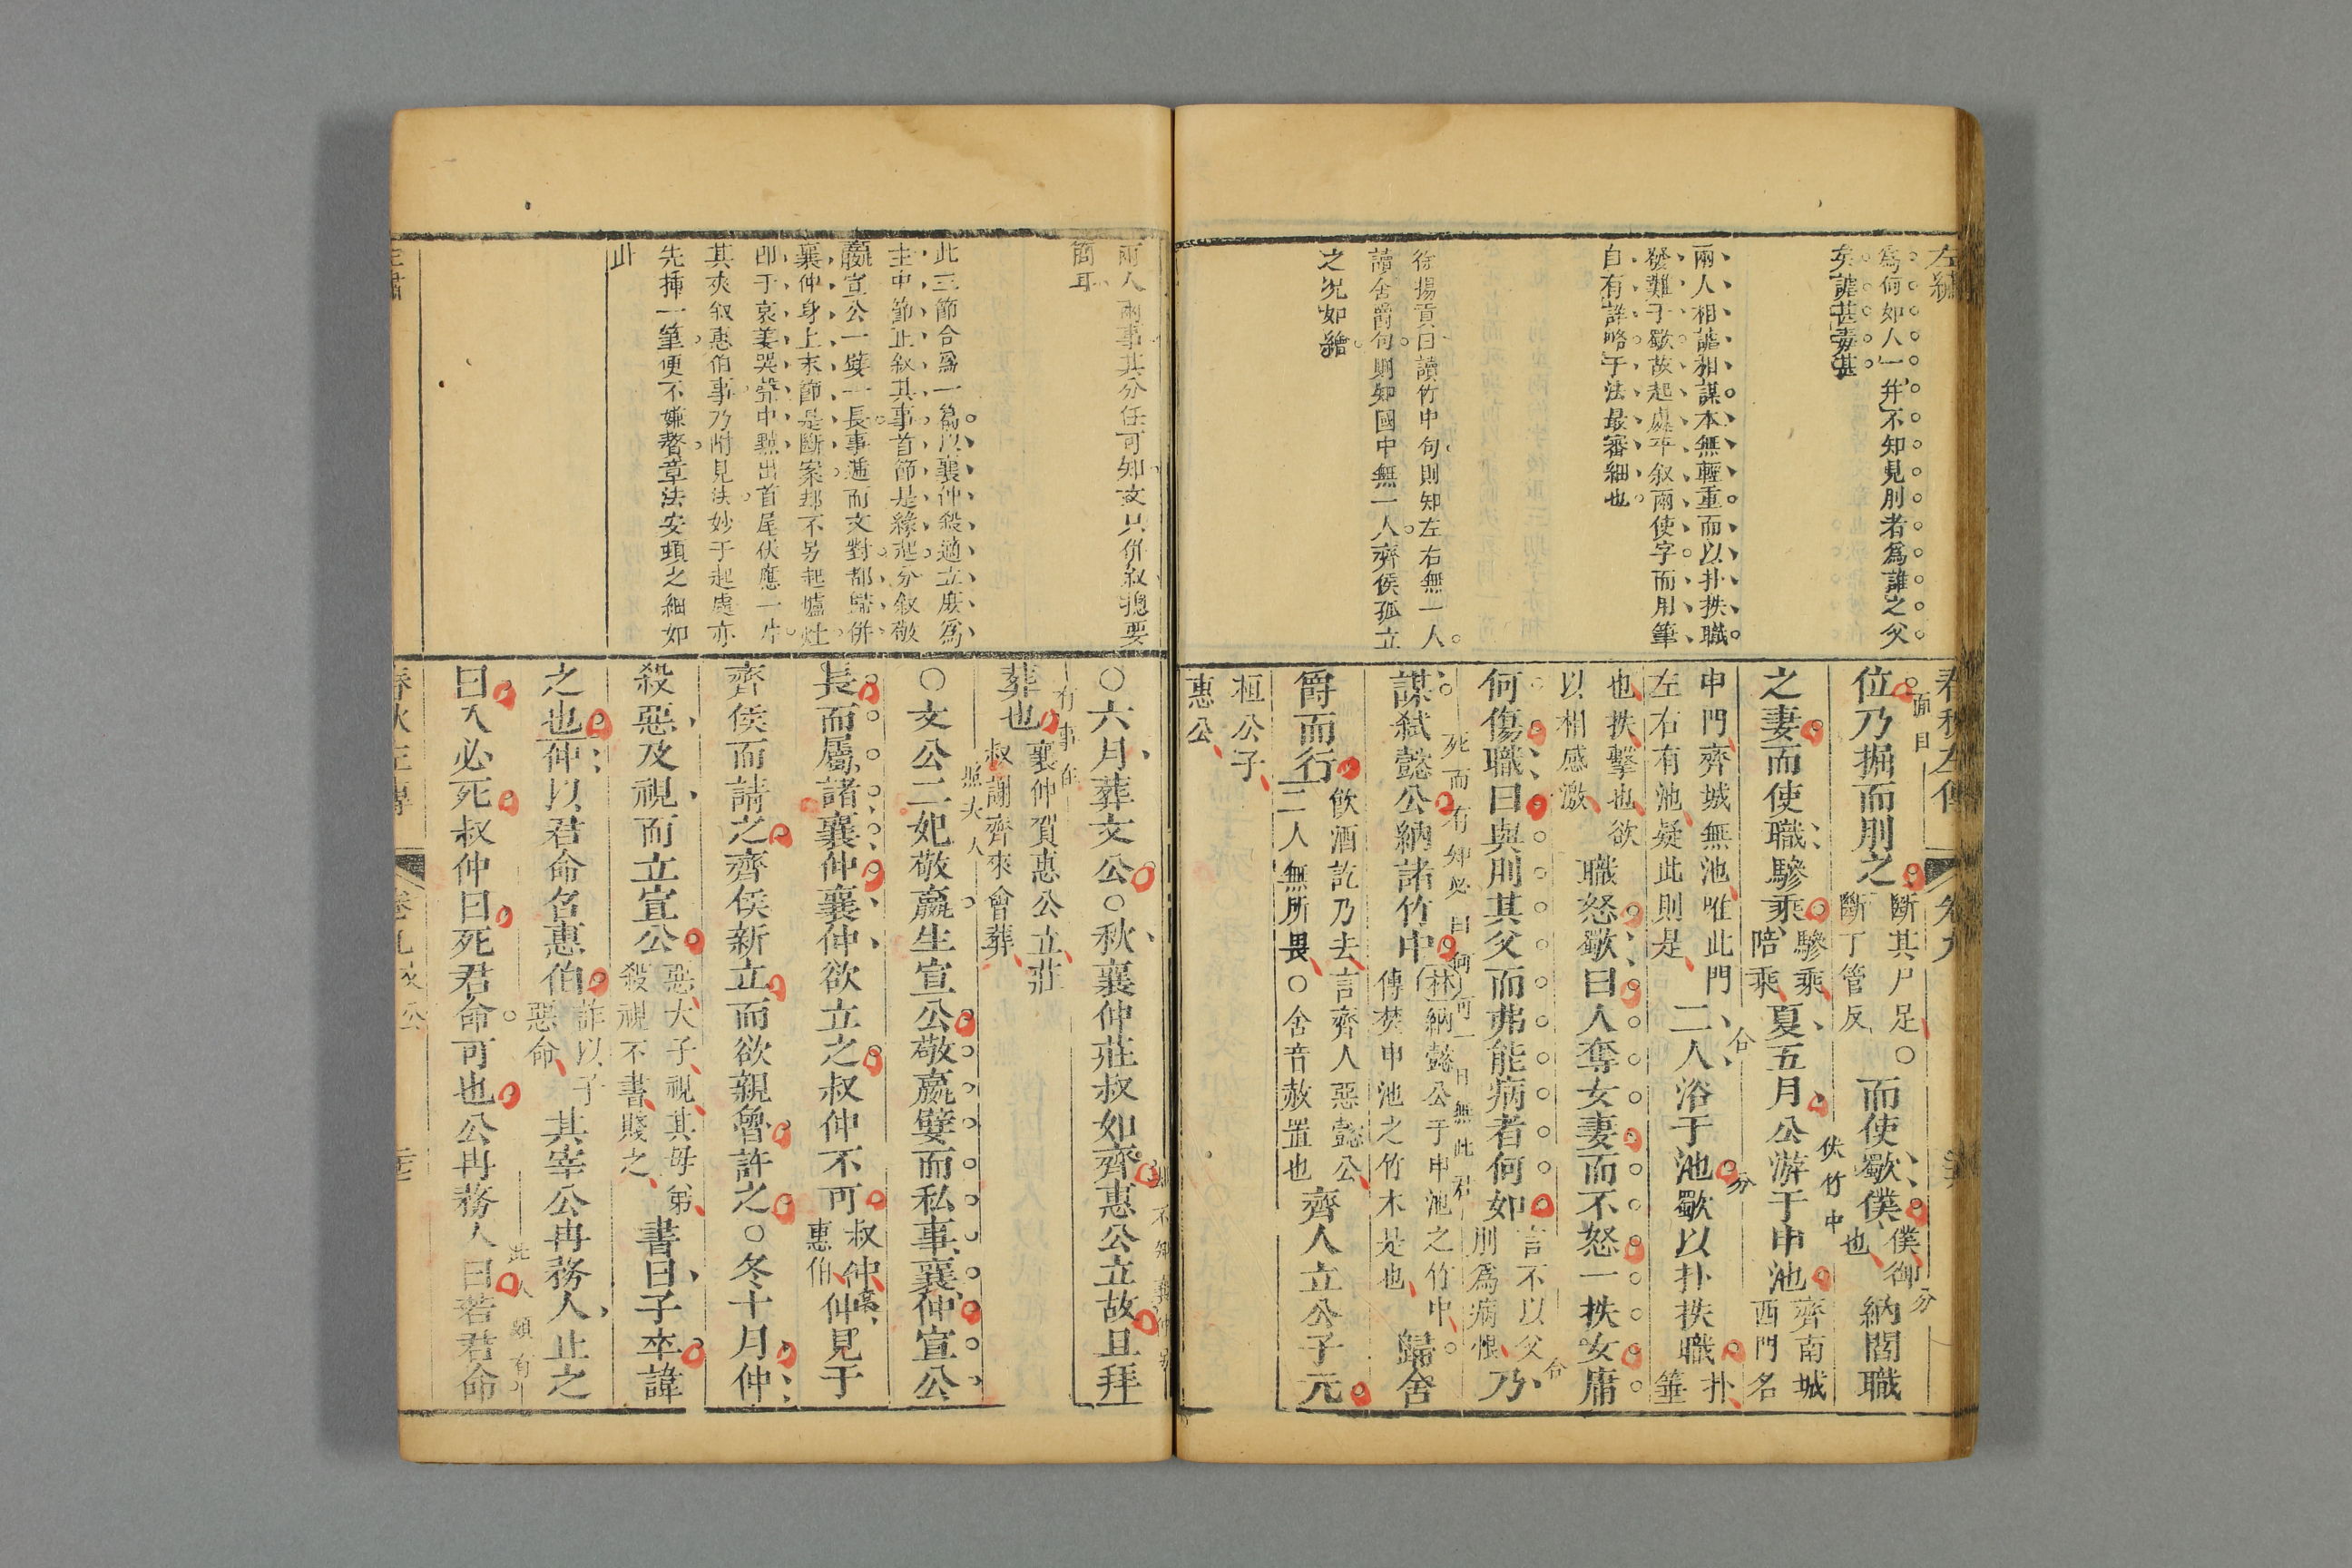 左繡
爲何如人一并不知見刖者爲誰之父
矣謔甚毒甚
兩人相謔相謀本無輕重而以扑抶職
發難于歜故起處平叙兩使字而用筆
自有詳略于法最審細也
徐揚貢曰讀竹中句則知左右無一人
讀舍爵句則知國中無一人齊侯孤立
之況如繪
春秋左傳 卷九
面目
位乃掘而刖之斷其尸足○
斷丁管反
而使歜僕僕御也納閻職
分
之妻而使職驂乘驂乘陪乘夏五月公游于申池齊南城西門名
伏竹中
申門齊城無池唯此門左右有池疑此則是
合
二人浴于池歜以扑抶職扑箠
分
也抶擊也欲以相感激
職怒歜曰人奪女妻而不怒一抶女庸
何傷職曰與刖其父而弗能病者何如言不以父刖爲病恨乃
合
謀弒懿公納諸竹中林納懿公于申池之竹中傳焚申池之竹木是也歸舍
爵而行飲酒訖乃去言齊人惡懿公二人無所畏○舍音赦置也齊人立公子元
桓公子惠公
兩人兩事其分任可知文只併叙摠要
簡耳
此三節合爲一篇以襄仲殺適立庶爲
主中節正叙其事首節是緣起分叙敬
嬴宣公一嬖一長事遞而文對都歸併
襄仲身上末節是斷案却不另起爐灶
卽于哀姜哭聲中點出首尾伏應一片
其夾叙惠伯事乃附見法妙于起處亦
先揷一筆便不嫌贅章法安頓之細如
此
○六月葬文公○秋襄仲莊叔如齊惠公立故且拜
葬也襄仲賀惠公立莊叔謝齊來會葬
○文公二妃敬嬴生宣公敬嬴嬖而私事襄仲宣公
長而屬諸襄仲襄仲欲立之叔仲不可叔仲惠伯仲見于
齊侯而請之齊侯新立而欲親魯許之○冬十月仲
殺惡及視而立宣公惡大子視其母弟殺視不書賤之書曰子卒諱
之也仲以君命召惠伯詐以子惡命其宰公冉務人止之
曰入必死叔仲曰死君命可也公冉務人曰若君命
春秋左傳 卷九 文公